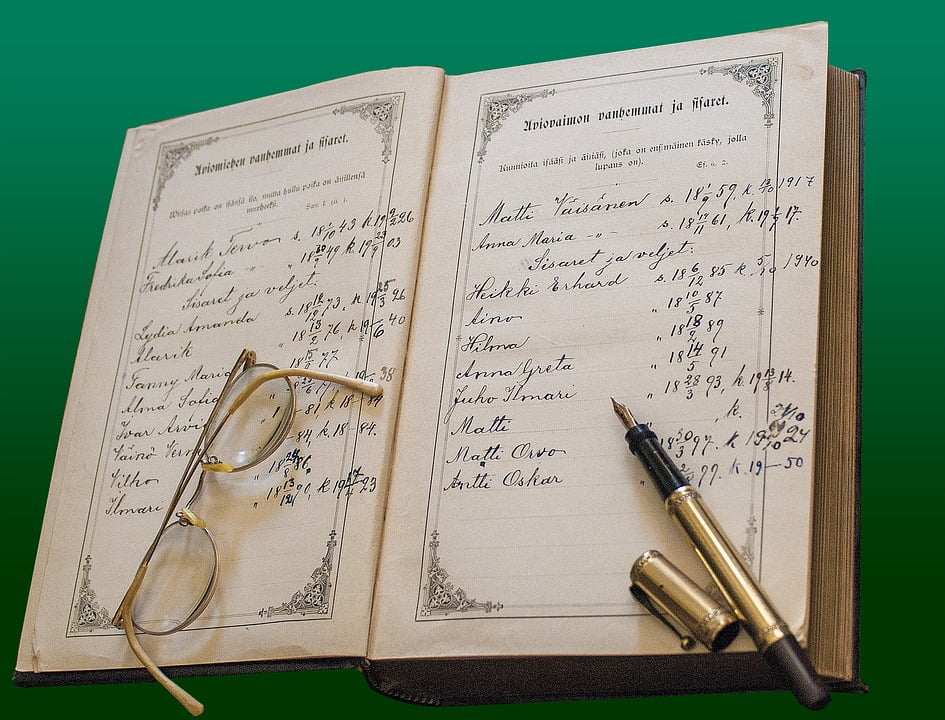 Aviomiehen vanhemmat ja sisaret.
Wiisas poika on isänsä ilo, mutta hullu poika on äitillensä
murheeksi. San. l. 10, 1.
Alarik Tervo s. 18 1/10 43 k 19 2/2 26
Fredrika Sofia -"- " 18 30/9 49 k. 19 23/9 03
Sisaret ja veljet:
Lydia Amanda s. 18 12/12 73, k 19 25/3 26
Alarik " 18 13/2 76, k 19 /6 40
Fanny Maria 18 15/ 77
Alma Sofia 38
Ivar Arvi 81 k 18 - 84
Väinö 84, k. 18 - 84.
Vilho " 18 /8 86
Ilmari " 18 13/12 90, k 19 17/ 23
Aviovaimon vanhemmat ja sisaret.
Kunnioita isääsi ja äitiäsi, (joka on ensimäinen käsky, jolla
lupaus on). Ef. 6, 2.
Matti Väisänen s. 18 1/9 59, k. 13/10 1917
Anna Maria -"- s. 18 17/11 61, k. 19 1/9 17.
Sisaret ja veljet:
Heikki Erhard s. 18 6/12 85 k. 5/10 1940
Aino " 18 10/5 87
Hilma " 18 18/2 89
Anna Greta " 18 14/5 91
Juho Ilmari " 18 28/3 93, k. 19 13/8 14.
Matti " k.
Matti Orvo 18 30/3 97. k 19 /10 24
Antti Oskar 99. k. 19 - 50